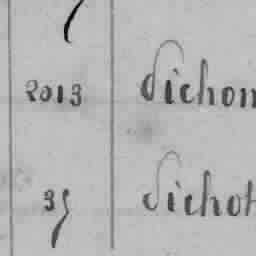 2013 Dichon
35 Dichot